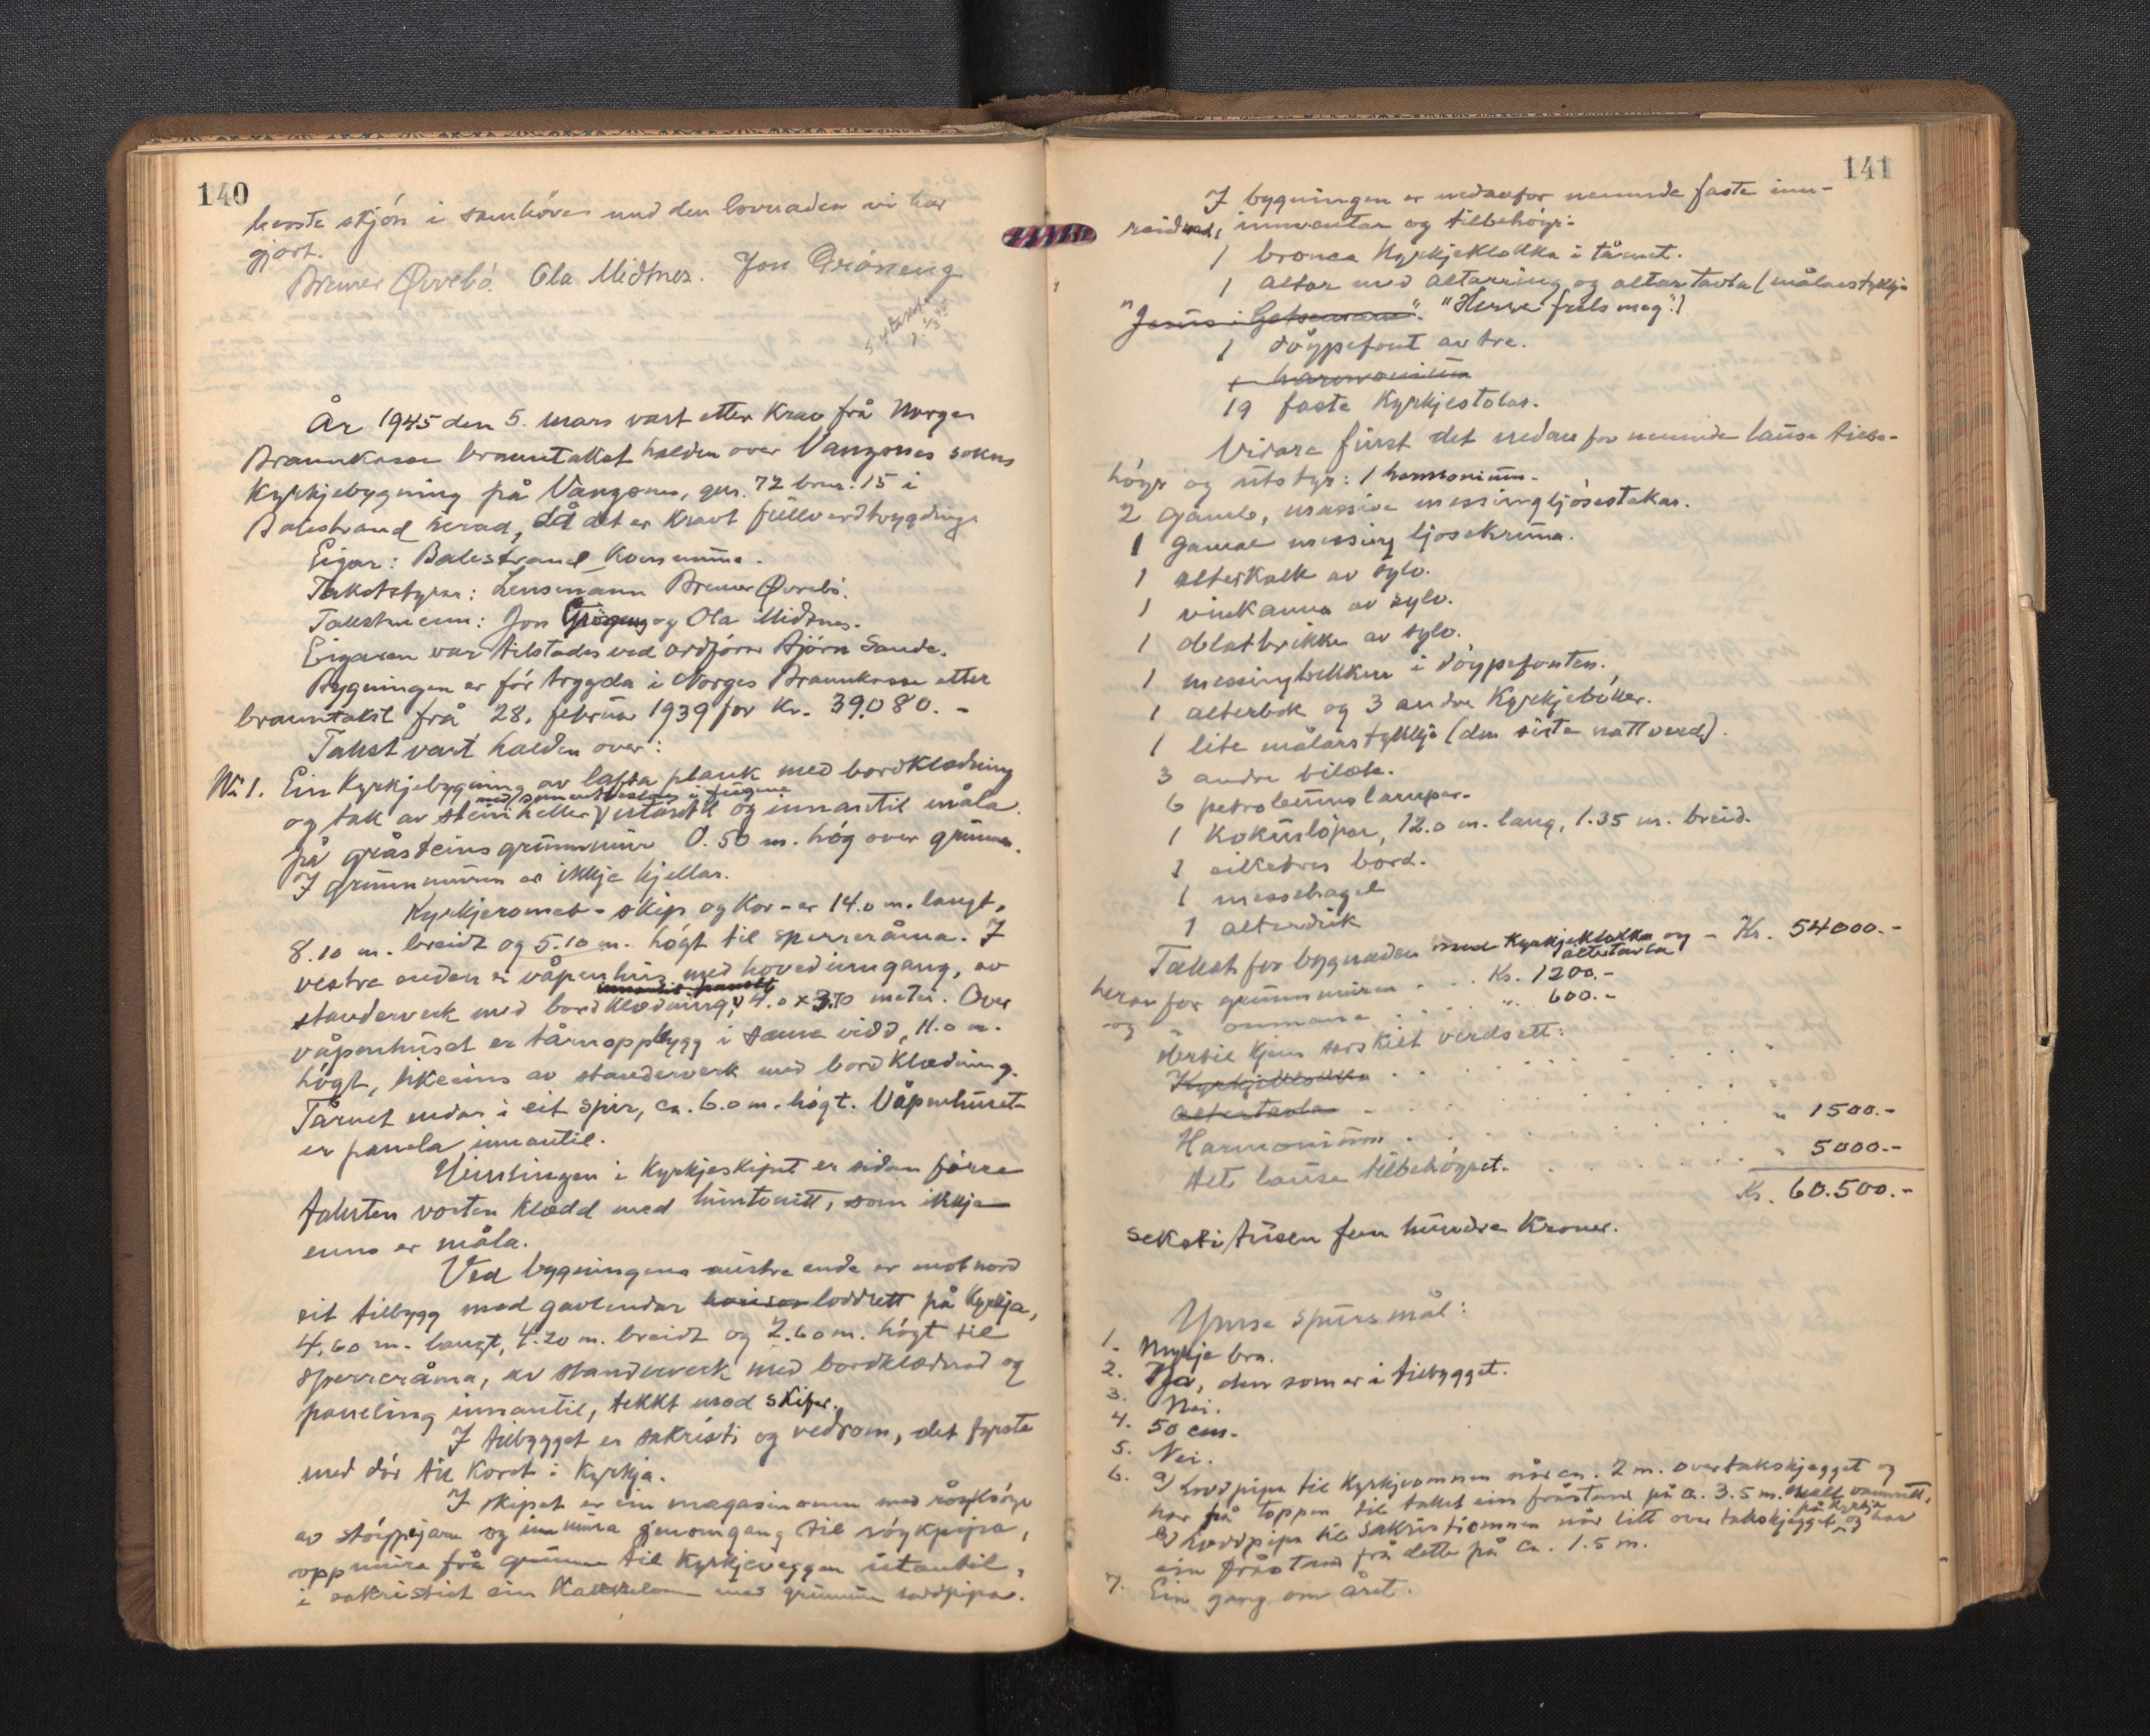 140
beste skjón i samhöve med den lovnaden vi har
gjort.
Bremer Øvrebó. Ola Midtnes. Jon Gróneng
År 1945 den 5. mars vart etter krav frå Norges
Brannkasse branntakst halden over Vangsnes sokns
Kyrkjebygning på Vangsnes, gnr. 72 brnr. 15 i
Balestrand herad, då det er kravt fullverdtrygding.
Eigar: Balestrand Kommune.
Takststyrar: Lensmann Bremer Øvrebó.
Takstmenn: Jon Gróneng og Ola Midtnes.
Eigaren var tilstades ved ordförar Björn Sande.
Bygningen er fór trygda i Norges Brannkasse etter
branntakst frå 28. februar 1939 for kr. 39.080.-
Takst vart halden over:
Nr 1. Ein Kyrkjebygning av lafta plank med bordklædning
og tak av steinheller, utantil og innantil måla
på gråsteinsgrunnmur 0.50 m. hóg over grunnen.
I grunnmuren er ikkje kjellar.
Kyrkjeromet - skip og Kor - er 14.0 m. langt,
8.10 m. breidt og 5.10 m. högt til sperreråma. I
vestre enden er våpenhus med hovedinngang, av
innantil panelt
standerverk med bordklædning, 4.0 x 3.70 meter. Over
våpenhuset er tårnoppbygg i same vidd, 11.0 m.
högt, likeeins av standerverk med bordklædning.
Tårnet endar i eit spir, ca. 6.0 m. högt. Våpenhuset
er panela innantil.
Himlingen i Kyrkjeskipet er sidan fórre
taksten vorten klædd med huntonitt, som ikkje
enno er måla.
Ved bygningens austre ende er mot nord
eit tilbygg med gavlendar loddrett på Kyrkja,
4.60 m. langt, 4.20 m. breidt og 2.60 m. högt til
sperreråma, av standerverk med bordklædnad og
paneling innantil, tekkt med skifer.
I tilbygget er sakristi og vedrom, det fyrste
med dör til Koret i Kyrkja.
I skipet er ein magasinomn med
av stöypejarn og innmura gjenomgang til röykpipa,
oppmura frå grunnen til Kyrkjeveggen utantil,
i sakristiet ein Kakkelomn med grunnmura loddpipa.
141
I bygningen er nedanfor nemnde faste inn-
reidnad, inventar og tilbehöyr:
1 bronce Kyrkjeklokka i tårnet.
1 altar med altarring og altartavla (målarstykkje
"Jesus i Getsemane". "Herre frels meg".)
1 döypefont av tre.
1 harmonium
19 faste Kyrkjestolar.
Vidare finst det nedanfor nemnde lause tilbe-
höyr og utstyr: 1 harmonium.
2 gamle, massive messingljósestakar.
1 gamal messing ljosekruna.
1 alterkalk av sylv.
1 vinkanna av sylv.
1 oblatbrikke av sylv.
1 messingbekken i döypefonten.
1 alterbok og 3 andre Kyrkjeböker.
1 lite målarstykkje (den siste nattverd).
3 andre bilete.
6 petroleumslamper.
1 Kokuslöpar, 12.0 m. lang, 1.35 m. breid.
1 eiketres bord.
1 messehagel
1 alterduk
Takst for bygnaden med Kyrkjeklokka og altertavla - Kr. 54000.-
herav for grunnmuren . . . Kr. 1200.-
og " omnane . . . . " 600.-
Hertil kjem serskilt verdsett:
Kyrkjeklokka
altertavla
Harmonium . . . . " 1500.-
Alt lause tilbehöyret. . . . " 5000.-
Kr. 60.500.-
seksti tusen fem hundre Kroner.
Ymse spursmål:
1. Mykje bra.
2. Ja, den som er i tilbygget.
3. Nei.
4. 50 cm.
5. Nei.
6. a) Loddpipa til Kyrkjeomnen når ca. 2 m. over takskjegget og
har frå toppen til taket ein fråstand på ca. 3.5 m. målt vannrett.
b) Loddpipa til sakristiomnen når litt over takskjegget på Kyrkja og har
ein fråstand frå dette på ca. 1.5 m.
7. Ein gang om året.